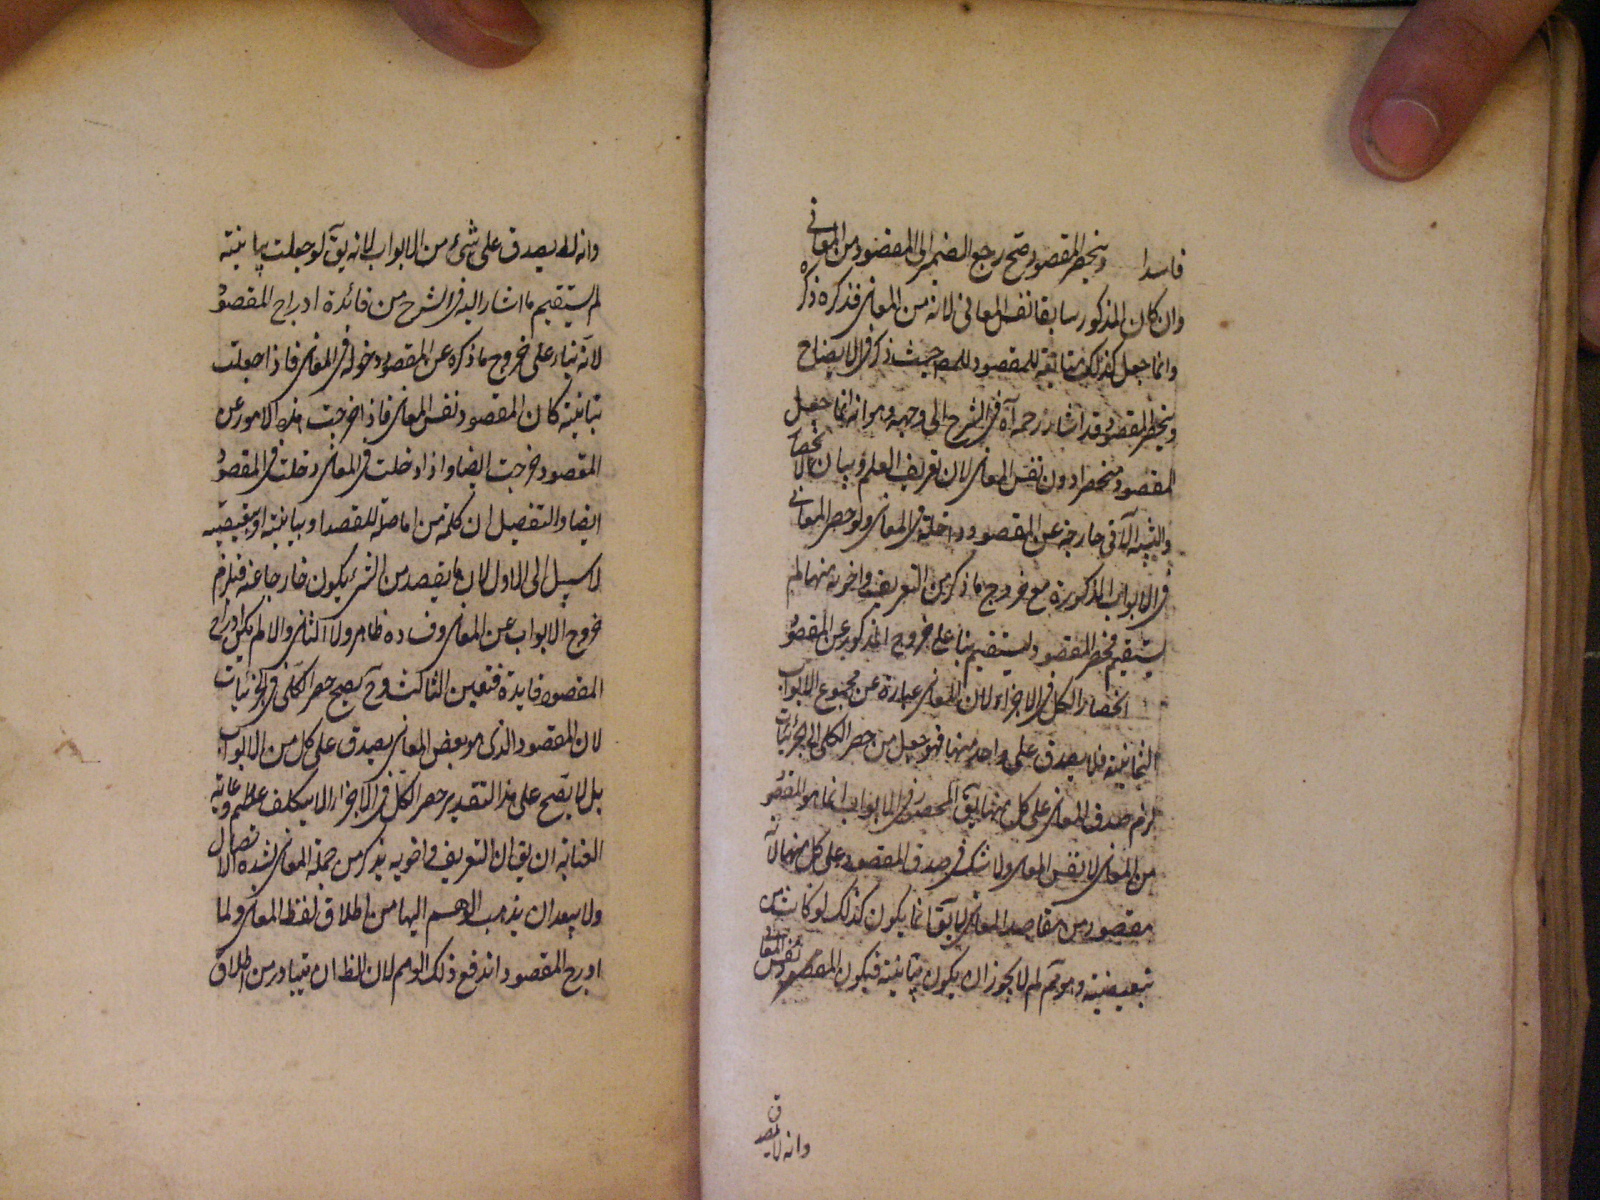 فاسدا وينحصر المقصود صح رجع الضمير الى المقصود من المعانى
وان كان المذكور سابقا نفس المعانى لانه من المعانى فذكره ذكره
وانما جعل كذلك متابعة للمقصود للمص حيث ذكر فى الايضاح
وينحصر المقصود وقد اشار رحمه آه فى الشرح الى وجهه وهو انه انما جعل
المقصود منحصرا دون نفس المعانى لان تعريف العلم وبيان الانحصار
والتنبيه الآتى خارجة عن المقصود وداخلة فى المعانى ولو حصر المعانى
فى الابواب المذكورة مع خروج ما ذكر من التعريف واخويه منها لم
يستقيم فحصر المقصود ليستقيم بناء على خروج المذكور عن المقصود
انحصار الكل فى الاجزاء لان المعانى عبارة عن مجموع الابواب
الثمانية فلا يصدق على واحد منها فهو جعل من حصر الكلى الى الجزئيات
لزم صدق المعانى على كل منها يق المحصور فى الابواب انما هو المقصود
من المعانى لا نفس المعانى ولا شك فى صدق المقصود على كل منها لانه
مقصود من مقاصد المعانى لا يق انما يكون كذلك لو كانت من
تبعيضية وهو مم لم لا يجوز ان يكون بيانية فيكون المقصود نفس المعانى
وانه لا يصدق
وانه لا يصدق على شئ من الابواب لانه يق لو جعلت بيانية
لم يستقيم ما اشار اليه فى الشرح من فائدة ادراج المقصود
لانه بناء على خروج ما ذكره عن المقصود دخوله فى المعانى فاذا جعلت
بيانية كان المقصود نفس المعانى فاذا خرجت هذه الامور عن
المقصود خرجت ايضا واذا دخلت فى المعانى دخلت فى المقصود
ايضا والتفصيل ان كلمة من اما صلة للقصد او بيانية او تبعيضية
لا سبيل الى الاول لان ما يقصد من الشئ يكون خارجا عنه فيلزم
خروج الابواب عن المعانى وفساده ظاهر ولا الثانى والا لم يكن لادراج
المقصود فايدة فتعين الثالث وح يصح حصر الكلى فى الجزئيات
لان المقصود الذى هو بعض المعانى يصدق على كل من الابواب
بل لا يصح على هذا التقدير حصر الكل فى الاجزاء الا بتكلف عظيم وغاية
العناية ان يق ان التعريف واخويه يذكر من جملة المعانى لشدة الاتصال
ولا يبعد ان يذهب الوهم اليها من اطلاق لفظ المعانى ولما
ادرج المقصود اندفع ذلك الوهم لان الظ ان يتبادر من اطلاق